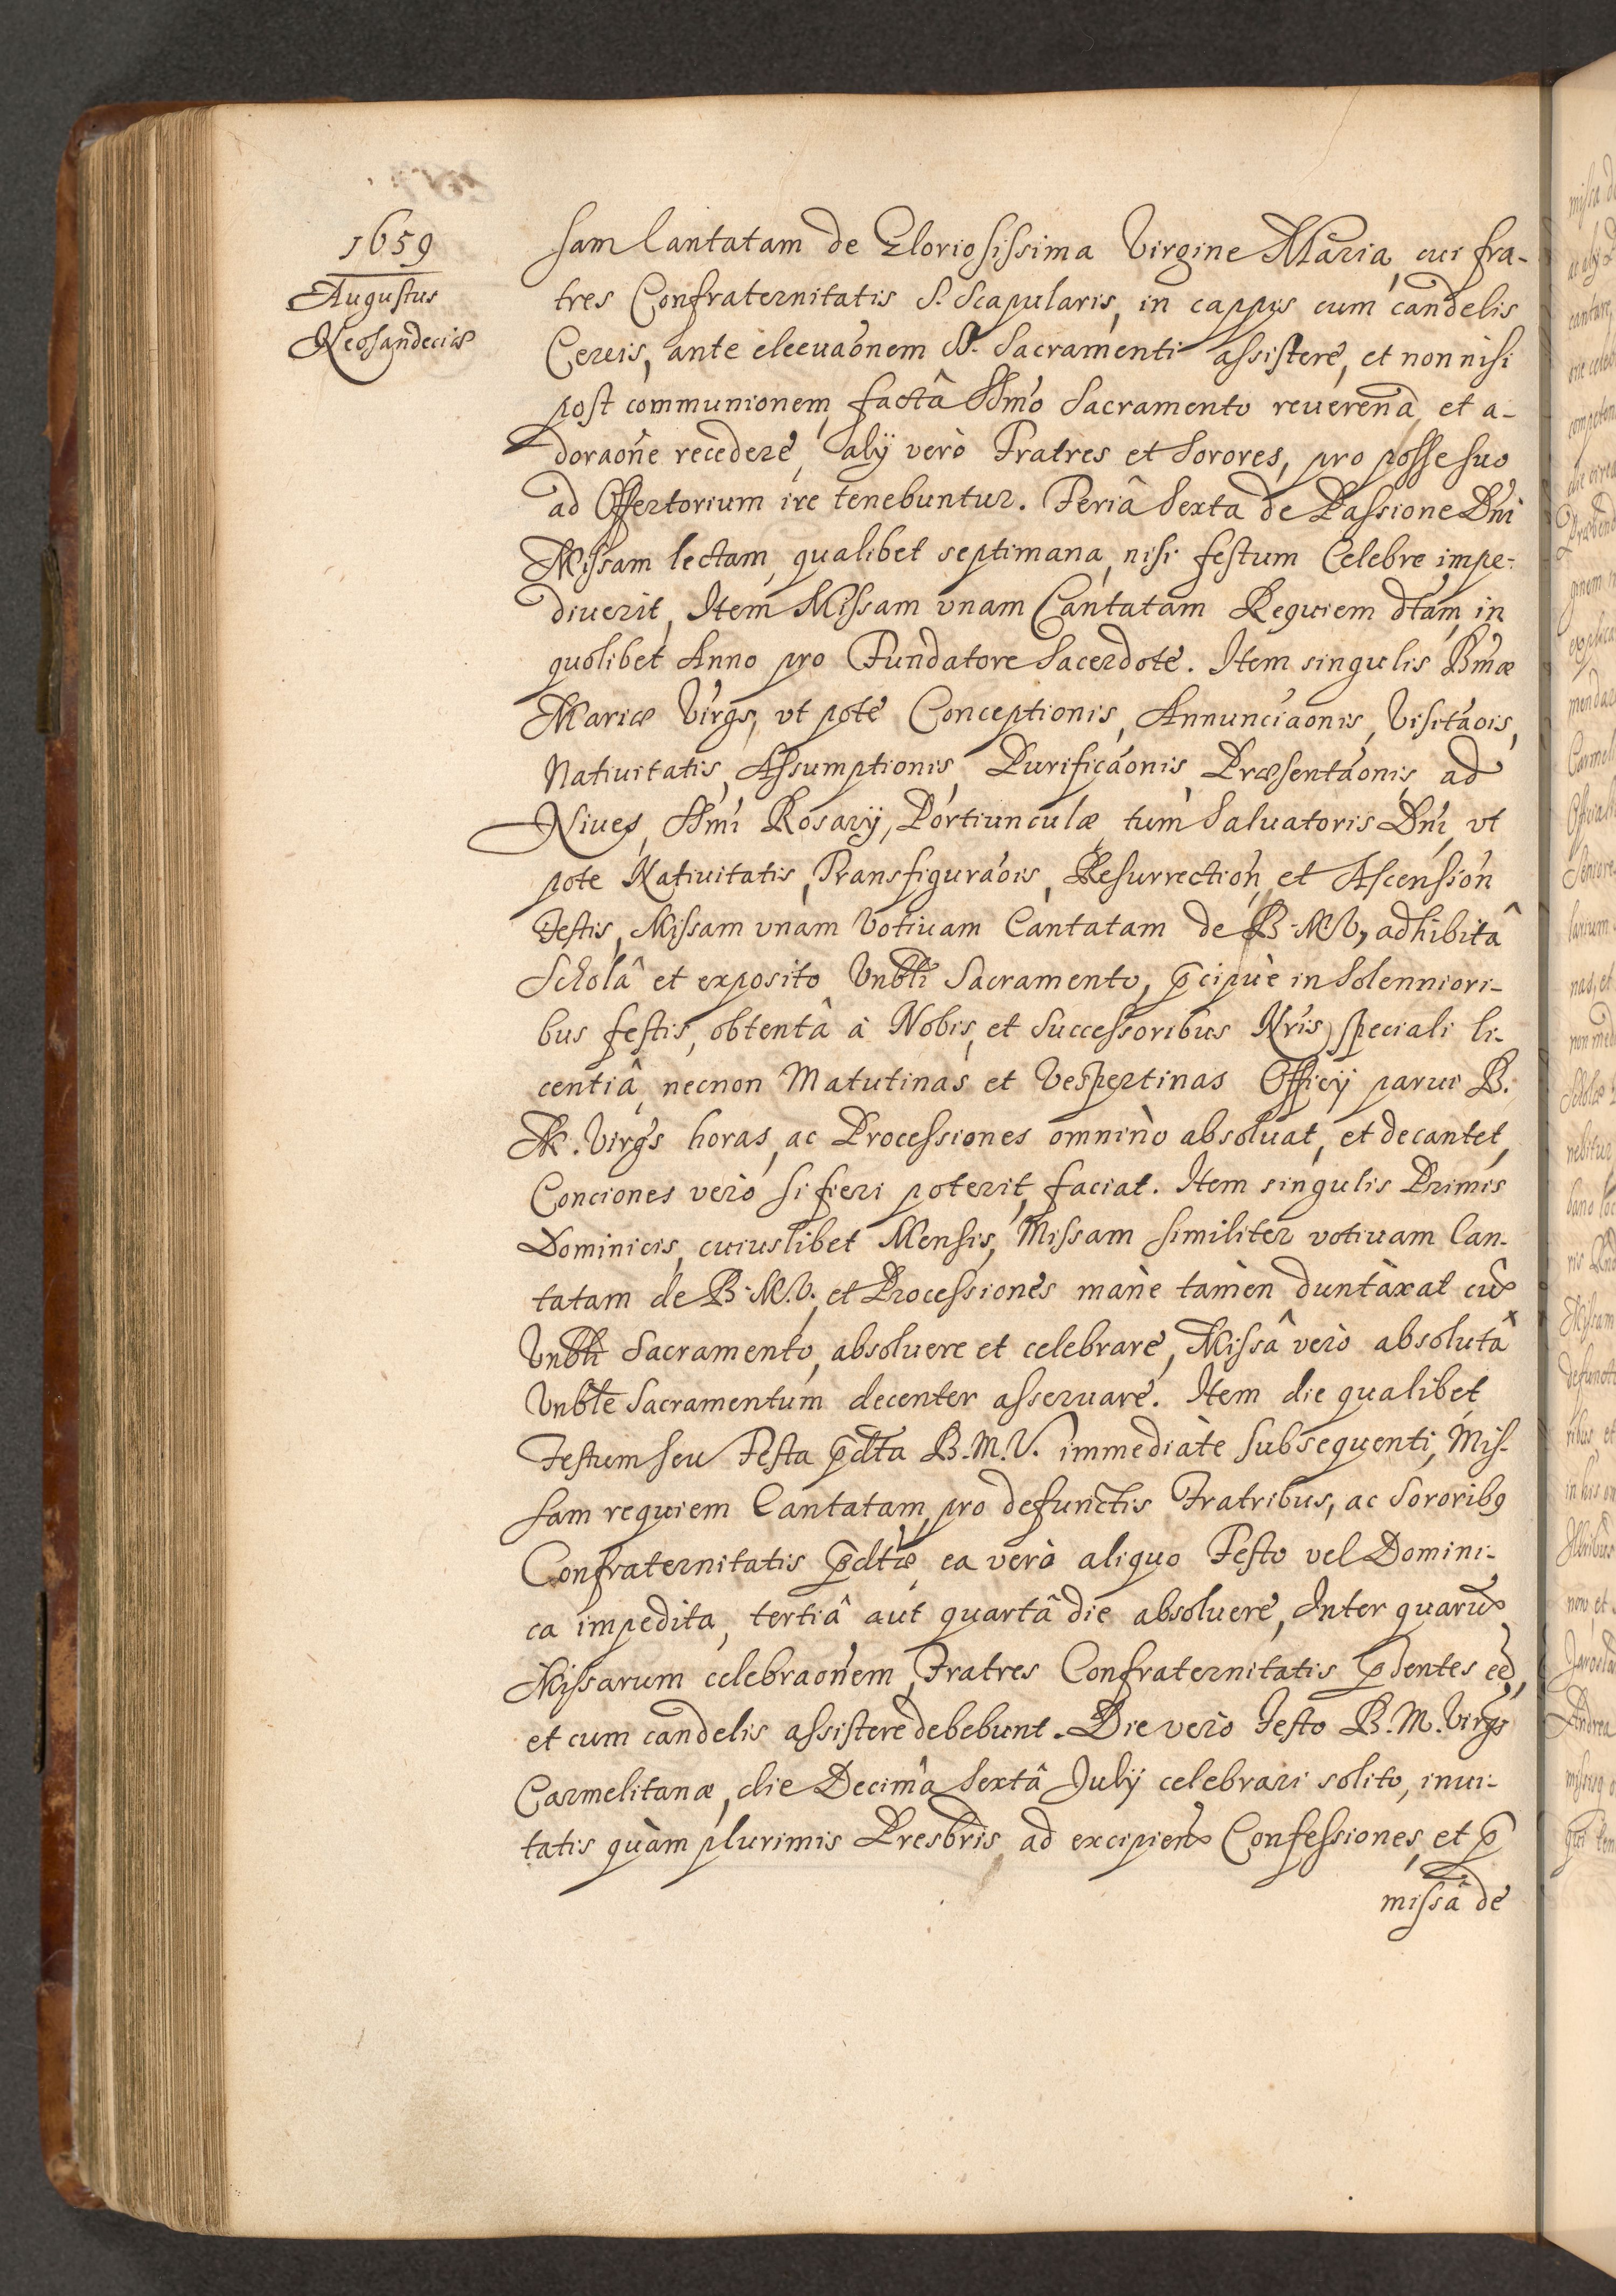 1659
Augustus
Neosandeciæ
sam Cantatam de Gloriosissima Virgine Maria, cui fra-
tres Confraternitatis S. Scapularis, in cappis cum candelis
Cereis, ante eleeuaõnem SS. Sacramenti assistere, et nonnisi
post communionem, factâ SSmo Sacramento reuerenã, et a-
doraõne recedere, alÿ verò Fratres et Sorores, pro posse suo
ad Offertorium ire tenebuntur. Feriâ Sexta de Passione Dni
Missam lectam, qualibet septimana, nisi festum Celebre impe-
diuerit, Item Missam vnam Cantatam Requiem dtam, in
quolibet Anno pro Fundatore Sacerdote. Item singulis Bmæ
Mariæ Virgs, vt pote Conceptionis, Annunciaonis, Visitaois,
Natiuitatis, Assumptionis, Purificaonis, Præsentaonis, ad
Niues, SSmi Rosarÿ, Portiunculæ, tum Saluatoris Dni, vt
pote Natiuitatis, Transfiguraois, Resurrection, et Ascension
Festis, Missam vnam Votiuam Cantatam de B. M. V, adhibitâ
Scholâ et exposito Vnbli Sacramento, p̃cipuè in Solenniori-
bus festis, obtentâ à Nobis, et Successoribus Nris speciali li-
centiâ, necnon Matutinas et Vespertinas Officÿ parui B.
M. Virgs horas, ac Processiones omninò absoluat, et decantet,
Conciones verò si fieri poterit, faciat. Item singulis Primis
Dominicis, cuiuslibet Mensis, Missam similiter votiuam Can-
tatam de B. M. V. et Processiones màne tamèn duntàxat cũ
Vnbli Sacramento, absoluere et celebrare, Missâ verò absolutâ
Vnble Sacramentum decenter asseruare. Item die qualibet
Festum seu Festa p̃dta B. M. V. immediàte subsequenti, Mis-
sam requiem Cantatam, pro defunctis Fratribus, ac Sororibꝰ
Confraternitatis p̃dtæ, ea verò aliquo Festo vel Domini-
ca impedita, tertiâ aut quartâ die absoluere, Inter quarũ
Missarum celebraonem, Fratres Confraternitatis p̃sentes eẽ,
et cum candelis assistere debebunt. Die verò Festo B. M. Virgs
Carmelitanæ, die Decima Sextâ Julÿ celebrari solito, inui-
tatis quàm plurimis Presbris, ad excipien Confessiones, et p̃
missâ de